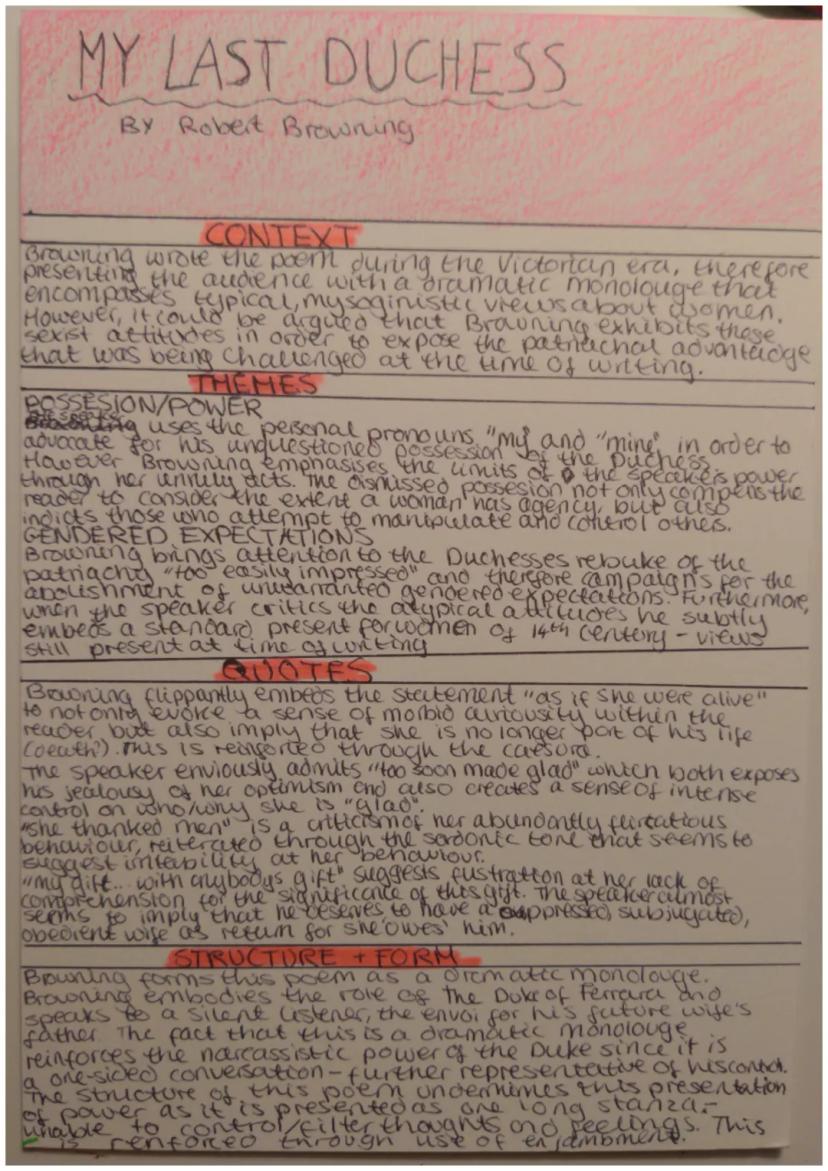 MY LAST DUCHESS
BY Robert Browning
CONTEXT
Browning wrote the poem during the Victorian era, therefore
presenting the audience with a dramatic monolouge that
encompasses typical, mysoginistic views about women.
However, it could be argued that Browning exhibits these
sexist attitudes in order to expose the patriachal advantadge
that was being challenged at the time of writing.
THEMES
POSSESION/POWER
uses the personal pronouns "my" and "mine" in order to
advocate for his unquestioned possession of the Duchess.
However Browning emphasises the limits of the speakers power
through her unruly acts. The dismissed possesion not only compells the
reader to consider the extent a woman has agency, but also
indicts those who attempt to manipulate and control others.
GENDERED EXPECTATIONS
Browning brings attention to the Duchesses rebuke of the
patriachy "too easily impressed" and therefore campaigns for the
abolishment of unwarranted gendered expectations. Furthermore,
when the speaker critics the atypical attitudes he subtly
embeds a standard present for women of 14th Century - views
still present at time of writing
QUOTES
Browning flippantly embeds the statement "as if she were alive"
to not only evoke a sense of morbid curiousity within the
reader but also imply that she is no longer part of his life
(death). This is reinforced through the caesura.
The speaker enviously admits "too soon made glad" which both exposes
his jealousy of her optimism and also creates a sense of intense
control on who/why she is "glad".
"she thanked men" is a criticism of her abundantly flirtatious
behaviour, reiterated through the sardonic tone that seems to
suggest irritability at her behaviour.
"my gift... with anybodys gift" suggests fustration at her lack of
comprehension for the significance of this gift. The speaker almost
seems to imply that he deserves to have a oppressed, subjugated,
obedient wife as return for she 'owes' him.
STRUCTURE + FORM
Browning forms this poem as a dramatic monolouge.
Browning embodies the role of The Duke of Ferrara and
speaks to a silent listener, the envoi for his future wife's
father. The fact that this is a dramatic monolouge
reinforces the narcassistic power of the Duke since it is
a one-sided conversation - further representative of his control.
The structure of this poem undermines this presentation
of power as it is presented as one long stanza -
unable to control/filter thoughts and feelings. This
is reinforced through use of enjambment.